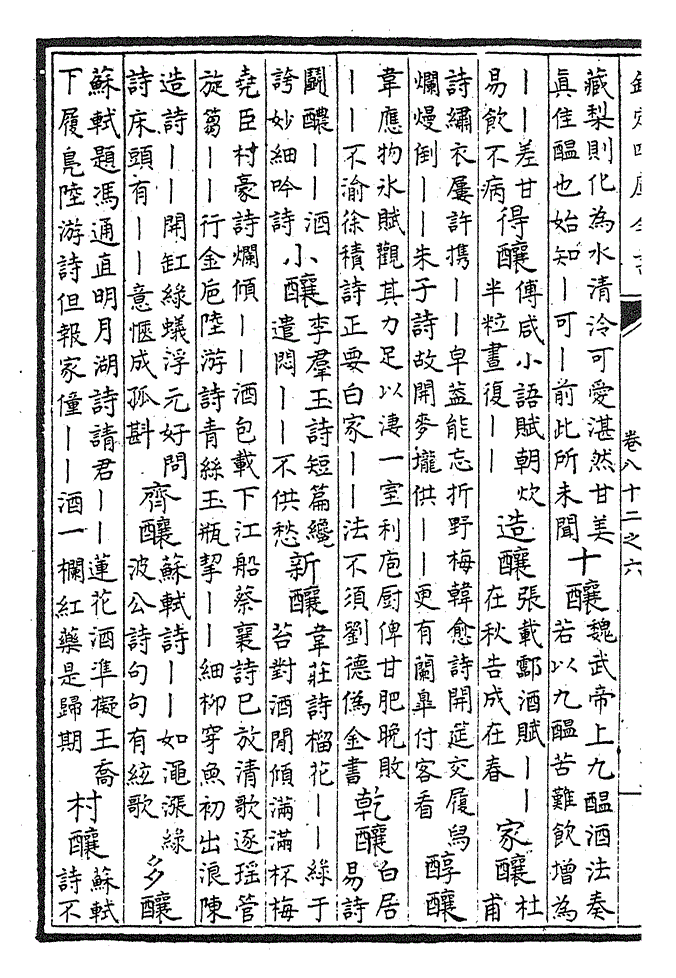 卷八十二之六
藏梨則化為水清泠可愛湛然甘美
真佳醖也始知丨可丨前此所未聞
十釀
魏武帝上九醖酒法奏
若以九醖苦難飲增為
丨丨差甘
易飲不病
得釀
傅咸小語賦朝炊
半粒晝復丨丨
造釀
張載酃酒賦丨丨
在秋告成在春
家釀
杜
甫
詩繡衣屢許攜丨丨皁葢能忘折野梅韓愈詩開筵交履舄
爛熳倒丨丨朱子詩故開麥壠供丨丨更有蘭臯付客看
醇釀
韋應物氷賦觀其力足以凄一室利庖厨俾甘肥晚敗
丨丨不渝徐積詩正要白家丨丨法不須劉德偽金書
乾釀
白居
易詩
鬭醲丨丨酒
誇妙細吟詩
小釀
李羣玉詩短篇纔
遣悶丨丨不供愁
新釀
韋莊詩榴花丨丨綠于
苔對酒閒傾滿滿杯梅
堯臣村豪詩爛傾丨丨酒包載下江船蔡襄詩已放清歌逐瑶管
旋篘丨丨行金巵陸游詩青絲玉瓶挈丨丨細柳穿魚初出浪陳
造詩丨丨開缸綠蟻浮元好問
詩床頭有丨丨意愜成孤斟
齊釀
蘇軾詩丨丨如澠漲綠
波公詩句句有絃歌
多釀
蘇軾題馮通直明月湖詩請君丨丨蓮花酒準擬王喬
下履鳧陸游詩但報家僮丨丨酒一欄紅藥是歸期
村釀
蘇軾
詩不